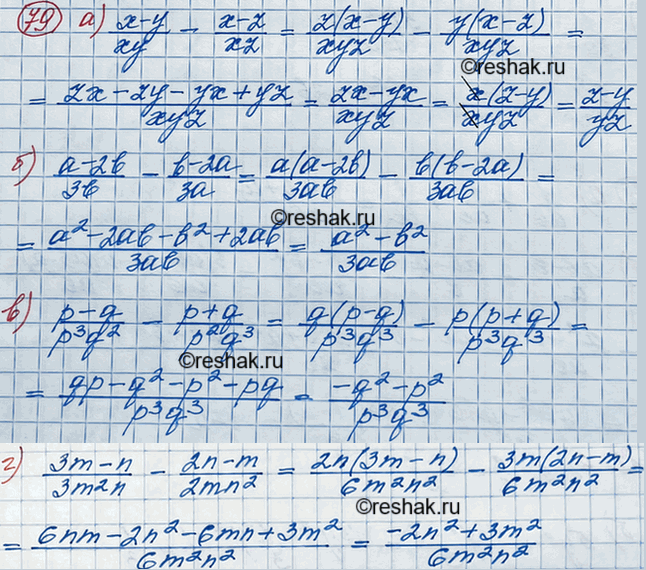 79 а) (x-y)/(xy) - (x-z)/(xz) = z(x-y)/(xyz) - y(x-z)/(xyz) =
©reshak.ru
= (zx-zy-yx+yz)/(xyz) = (zx-yx)/(xyz) = x(z-y)/(xyz) = (z-y)/(yz)
б) (a-2b)/(3b) - (b-2a)/(3a) = a(a-2b)/(3ab) - b(b-2a)/(3ab) =
©reshak.ru
= (a²-2ab-b²+2ab)/(3ab) = (a²-b²)/(3ab)
в) (p-q)/(p³q²) - (p+q)/(p²q³) = q(p-q)/(p³q³) - p(p+q)/(p³q³) =
©reshak.ru
= (qp-q²-p²-pq)/(p³q³) = (-q²-p²)/(p³q³)
г) (3m-n)/(3m²n) - (2n-m)/(2mn²) = 2n(3m-n)/(6m²n²) - 3m(2n-m)/(6m²n²) =
©reshak.ru
= (6nm-2n²-6mn+3m²)/(6m²n²) = (-2n²+3m²)/(6m²n²)